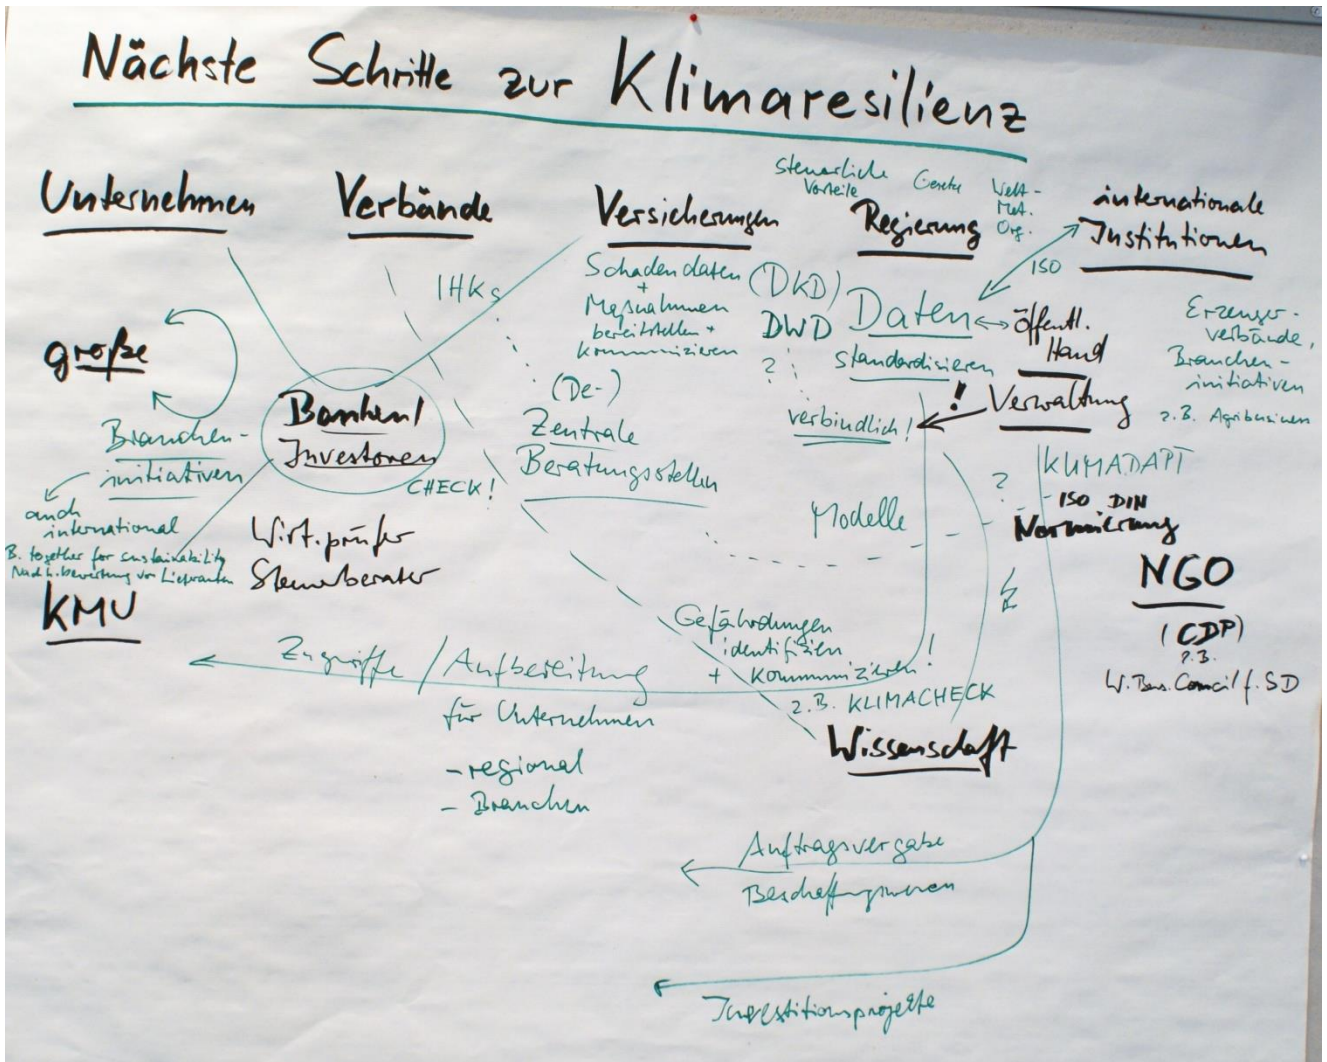 Nächste Schritte zur Klimaresilienz
Unternehmen
Verbände
Versicherungen
steuerliche
Vorteile
Gesetze
Regierung
Welt-
Met.
Org.
internationale
Institutionen
ISO
IHKs
Schadendaten
+
Maßnahmen
bereitstellen +
kommunizieren
(DKD)
DWD
?
Daten
standardisieren
öffentl.
Hand
Verwaltung
!
verbindlich!
Erzeuger-
verbände,
Branchen-
initiativen
z.B. Agribusiness
große
Branchen-
initiativen
auch
international
B. together for sustainability
Nachh.bewertung von Lieferanten
KMU
Banken/
Investoren
CHECK!
Wirt.prüfer
Steuerberater
(De-)
Zentrale
Beratungsstellen
Modelle
?
KLIMADAPT
- ISO DIN
Normierung
NGO
(CDP)
z.B.
W. Bus. Council f. SD
Gefährdungen
identifizien
+ kommunizieren!
z.B. KLIMACHECK
Wissenschaft
Zugriffe / Aufbereitung
für Unternehmen
- regional
- Branchen
Auftragsvergabe
Beschaffungswesen
Investitionsprojekte